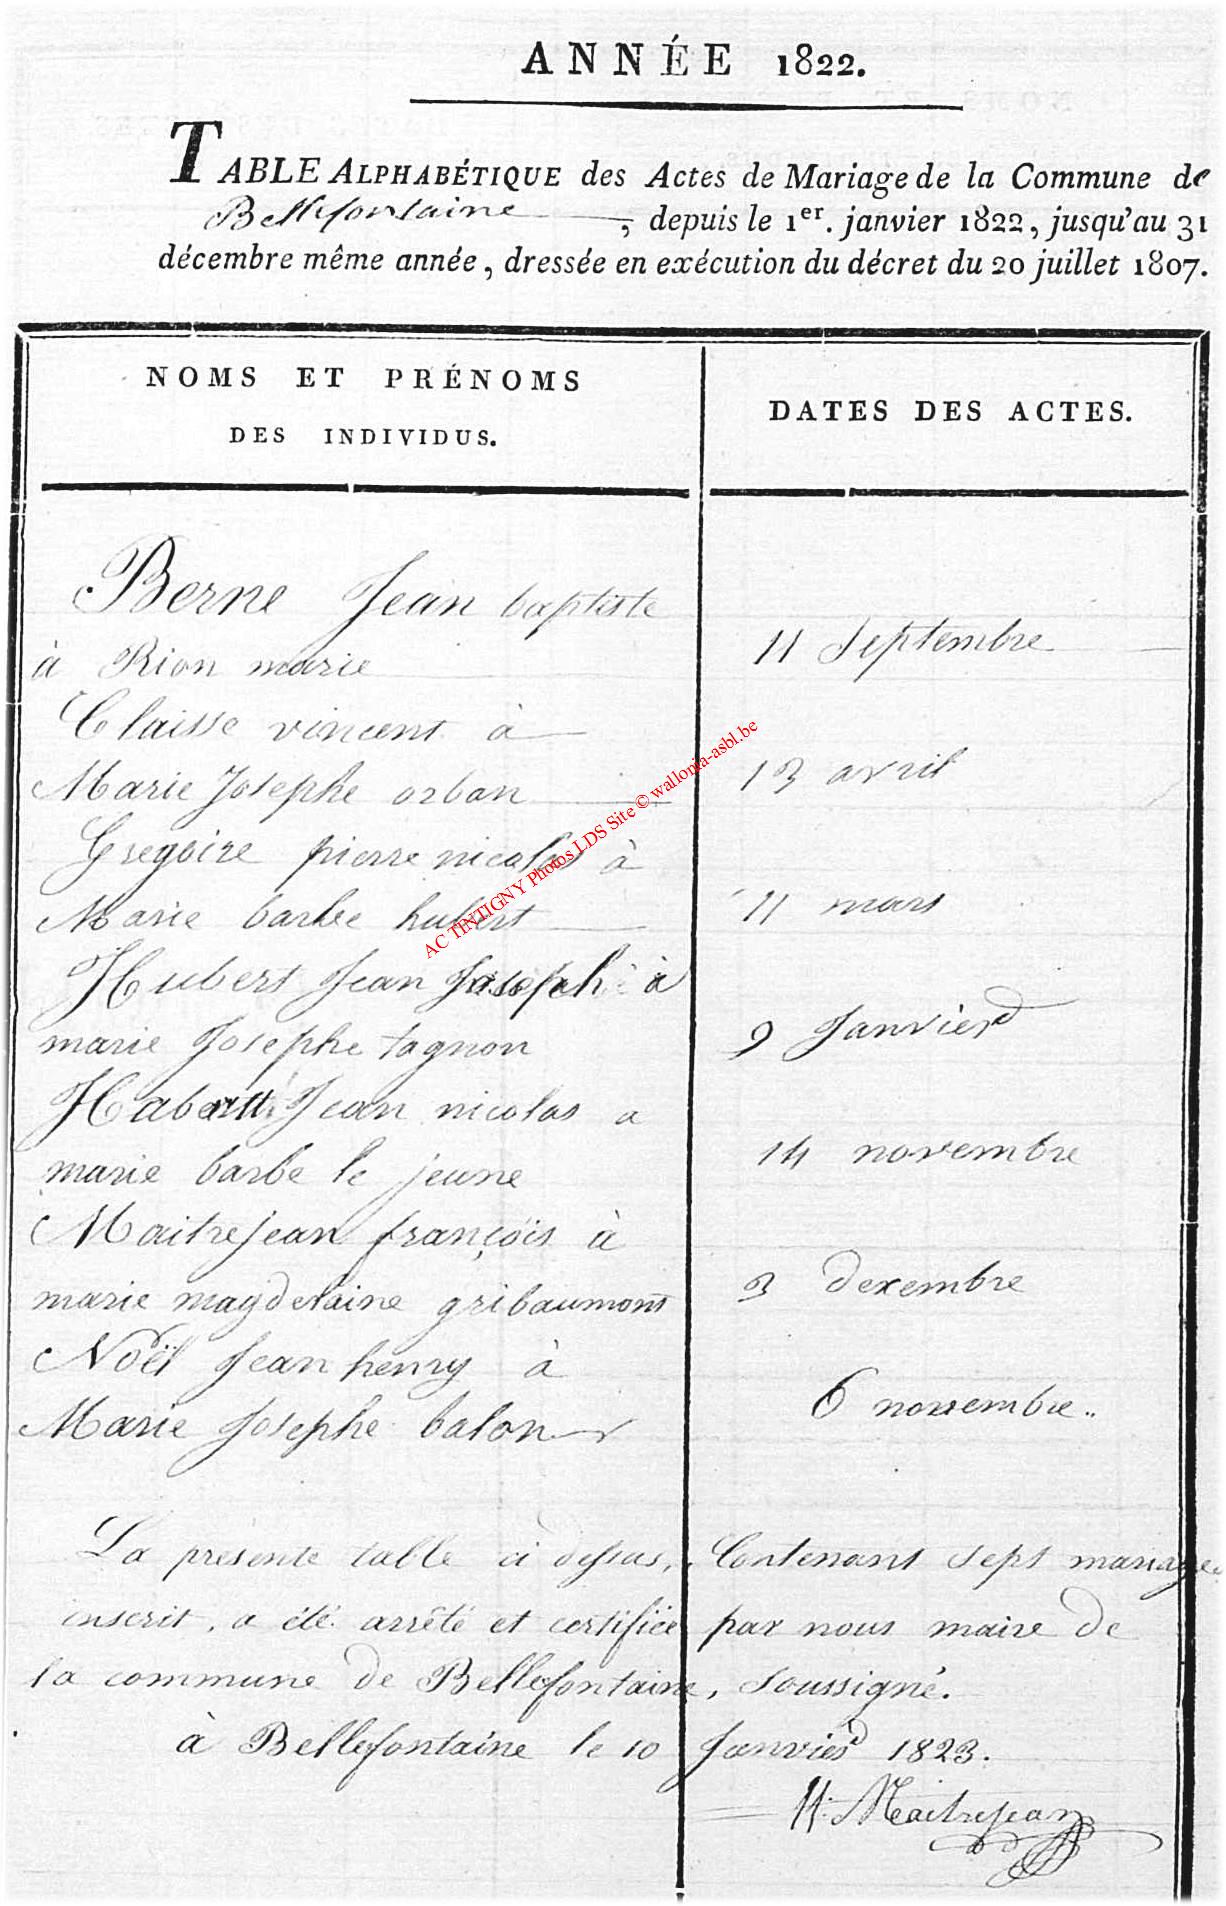 ANNÉE 1822.
TABLE ALPHABÉTIQUE des Actes de Mariage de la Commune de
Bellefontaine, depuis le 1er. janvier 1822, jusqu'au 31
décembre même année, dressée en exécution du décret du 20 juillet 1807.
NOMS ET PRÉNOMS
DES INDIVIDUS.
DATES DES ACTES.
Berne Jean baptiste
à Rion marie
11 Septembre
Claisse vincent à
Marie Josephe orban
13 avril
Gregoire pierre nicolas à
Marie barbe hubert
11 mars
Hubert Jean Joseph à
marie Josephe tagnon
9 Janvier
Jean nicolas a
marie barbe le jeune
14 novembre
Maitrejean françois à
marie magdelaine gribaumont
3 dexembre
Noël Jean henry à
Marie Josephe balon
6 novembre..
La présente table ci dessus, Contenant sept mariages
inscrit, a été arrêté et certifiée par nous maire de
la commune de Bellefontaine, soussigné.
à Bellefontaine le 10 Janvier 1823.
H. Maitrejean
AC TINTIGNY Photos LDS Site © wallonia-asbl.be